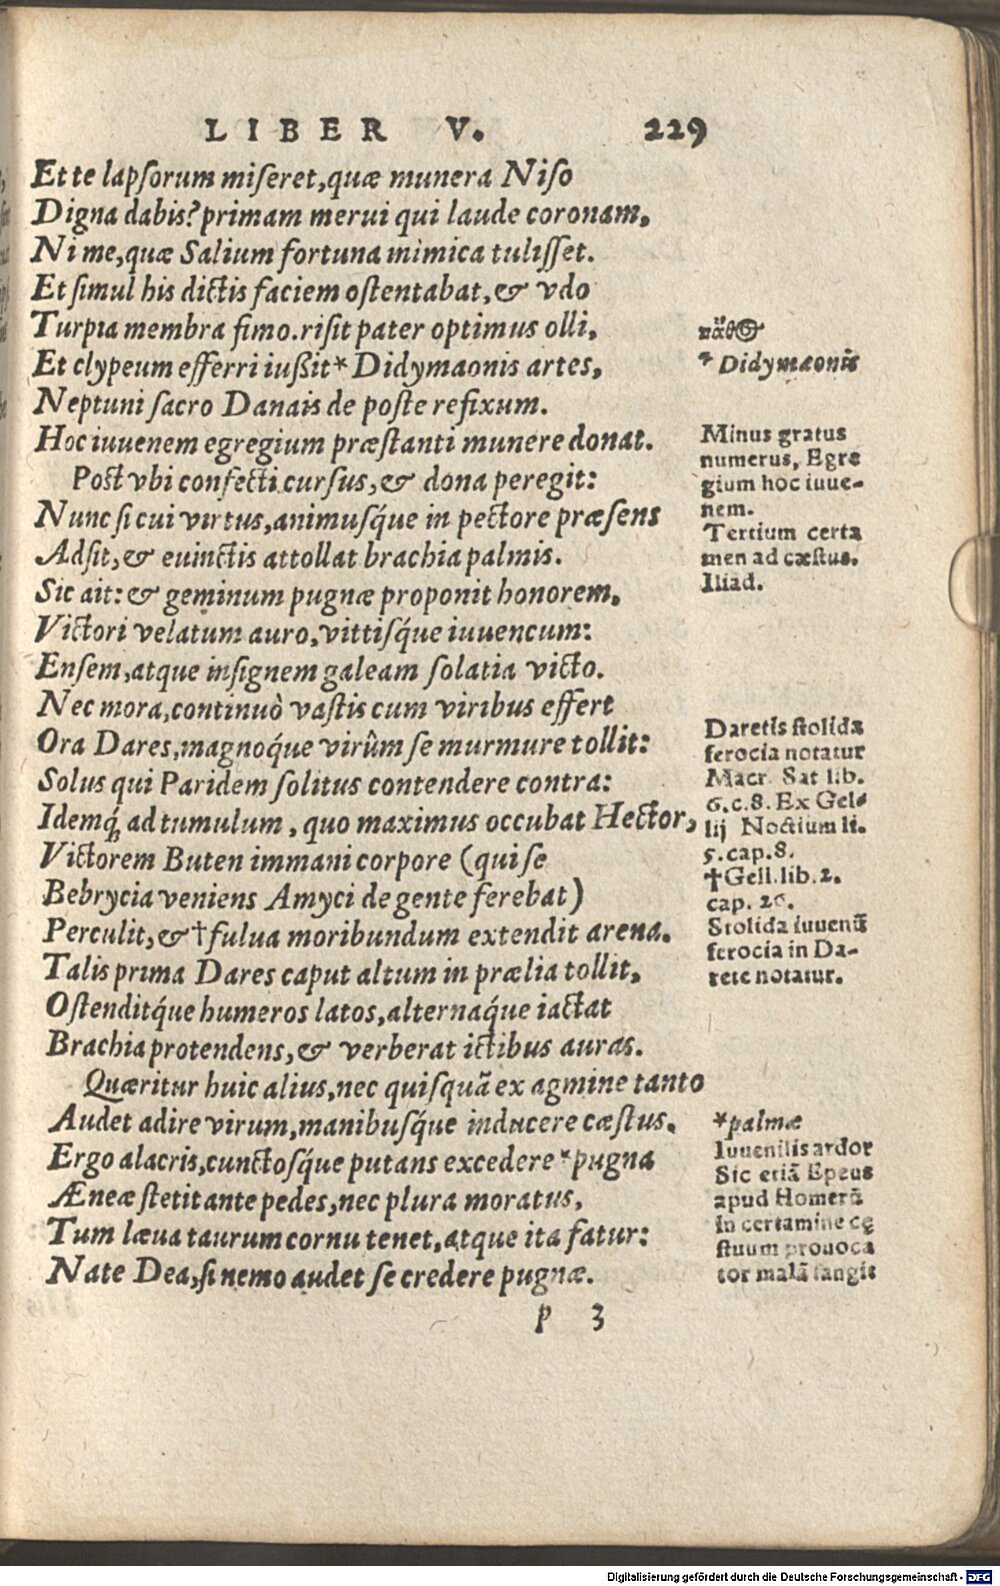 LIBER V. 229
Et te lapſorum miſeret, quæ munera Niſo
Digna dabis? primam merui qui laude coronam,
Ni me, quæ Salium fortuna inimica tuliſſet.
Et ſimul his dictis faciem oſtentabat, & vdo
Turpia membra fimo. riſit pater optimus olli,
Et clypeum efferri iußit* Didymaonis artes,
Neptuni ſacro Danais de poſte refixum.
Hoc iuuenem egregium præſtanti munere donat.
Poſt vbi confecti curſus, & dona peregit:
Nunc ſi cui virtus, animusq́ue in pectore præſens
Adſit, & euinctis attollat brachia palmis.
Sic ait: & geminum pugnæ proponit honorem,
Victori velatum auro, vittisq́ue iuuencum:
Enſem, atque inſignem galeam ſolatia victo.
Nec mora, continuò vaſtis cum viribus effert
Ora Dares, magnoq́ue virûm ſe murmure tollit:
Solus qui Paridem ſolitus contendere contra:
Idemq́; ad tumulum, quo maximus occubat Hector,
Victorem Buten immani corpore (qui ſe
Bebrycia veniens Amyci de gente ferebat)
Perculit, & †fulua moribundum extendit arena.
Talis prima Dares caput altum in prælia tollit,
Oſtenditq́ue humeros latos, alternaq́ue iactat
Brachia protendens, & verberat ictibus auras.
Quæritur huic alius, nec quiſquā ex agmine tanto
Audet adire virum, manibusq́ue inducere cæſtus.
Ergo alacris, cunctosq́ue putans excedere *pugna
Æneæ ſtetit ante pedes, nec plura moratus,
Tum læua taurum cornu tenet, atque ita fatur:
Nate Dea, ſi nemo audet ſe credere pugnæ.
p 3
* Didymaonis
Minus gratus
numerus, Egre
gium hoc iuue-
nem.
Tertium certa
men ad cæſtus.
Iliad.
Daretis ſtolida
ferocia notatur
Macr. Sat lib.
6.c.8. Ex Gel-
lij Noctium li.
5.cap.8.
†Gell.lib.2.
cap. 26.
Stolida iuuenū
ferocia in Da-
rete notatur.
*palmæ
Iuuenilis ardor
Sic etiā Epeus
apud Homerū
in certamine cę
ſtuum prouoca
tor malā tangit
Digitalisierung gefördert durch die Deutsche Forschungsgemeinschaft - DFG